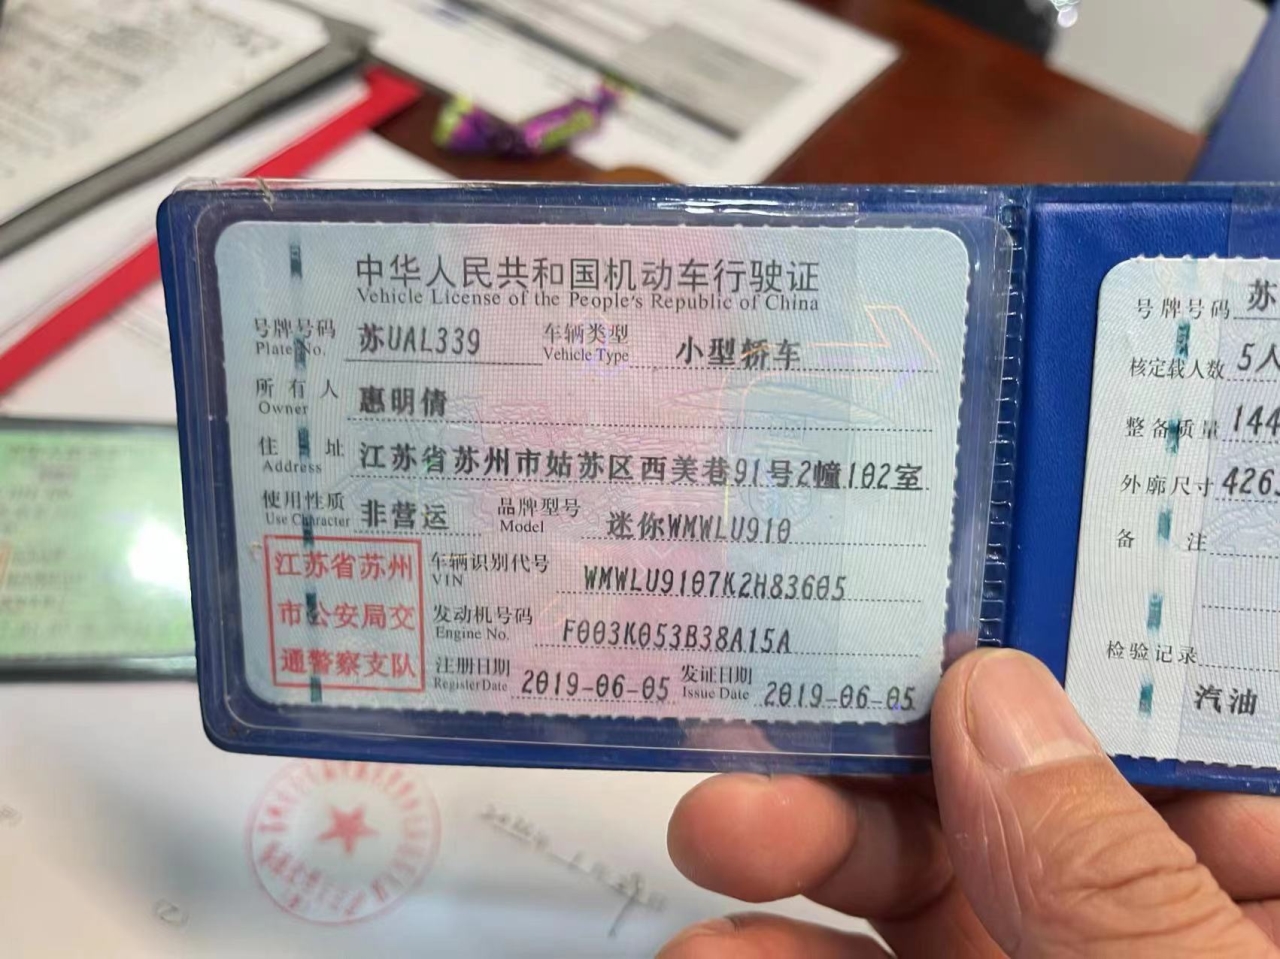 中华人民共和国机动车行驶证
Vehicle License of the People's Republic of China
号牌号码 苏UAL339 车辆类型 小型轿车
Plate No. Vehicle Type
所有人 惠明倩
Owner
住址 江苏省苏州市姑苏区西美巷91号2幢102室
Address
使用性质 非营运 品牌型号 迷你WMWLU910
Use Character Model
江苏省苏州
市公安局交
通警察支队
车辆识别代号 WMWLU9107K2H83605
VIN
发动机号码 F003K053B38A15A
Engine No.
注册日期 2019-06-05 发证日期 2019-06-05
Register Date Issue Date
号牌号码 苏
核定载人数 5人
整备质量 144
外廓尺寸 426
备注
检验记录
汽油